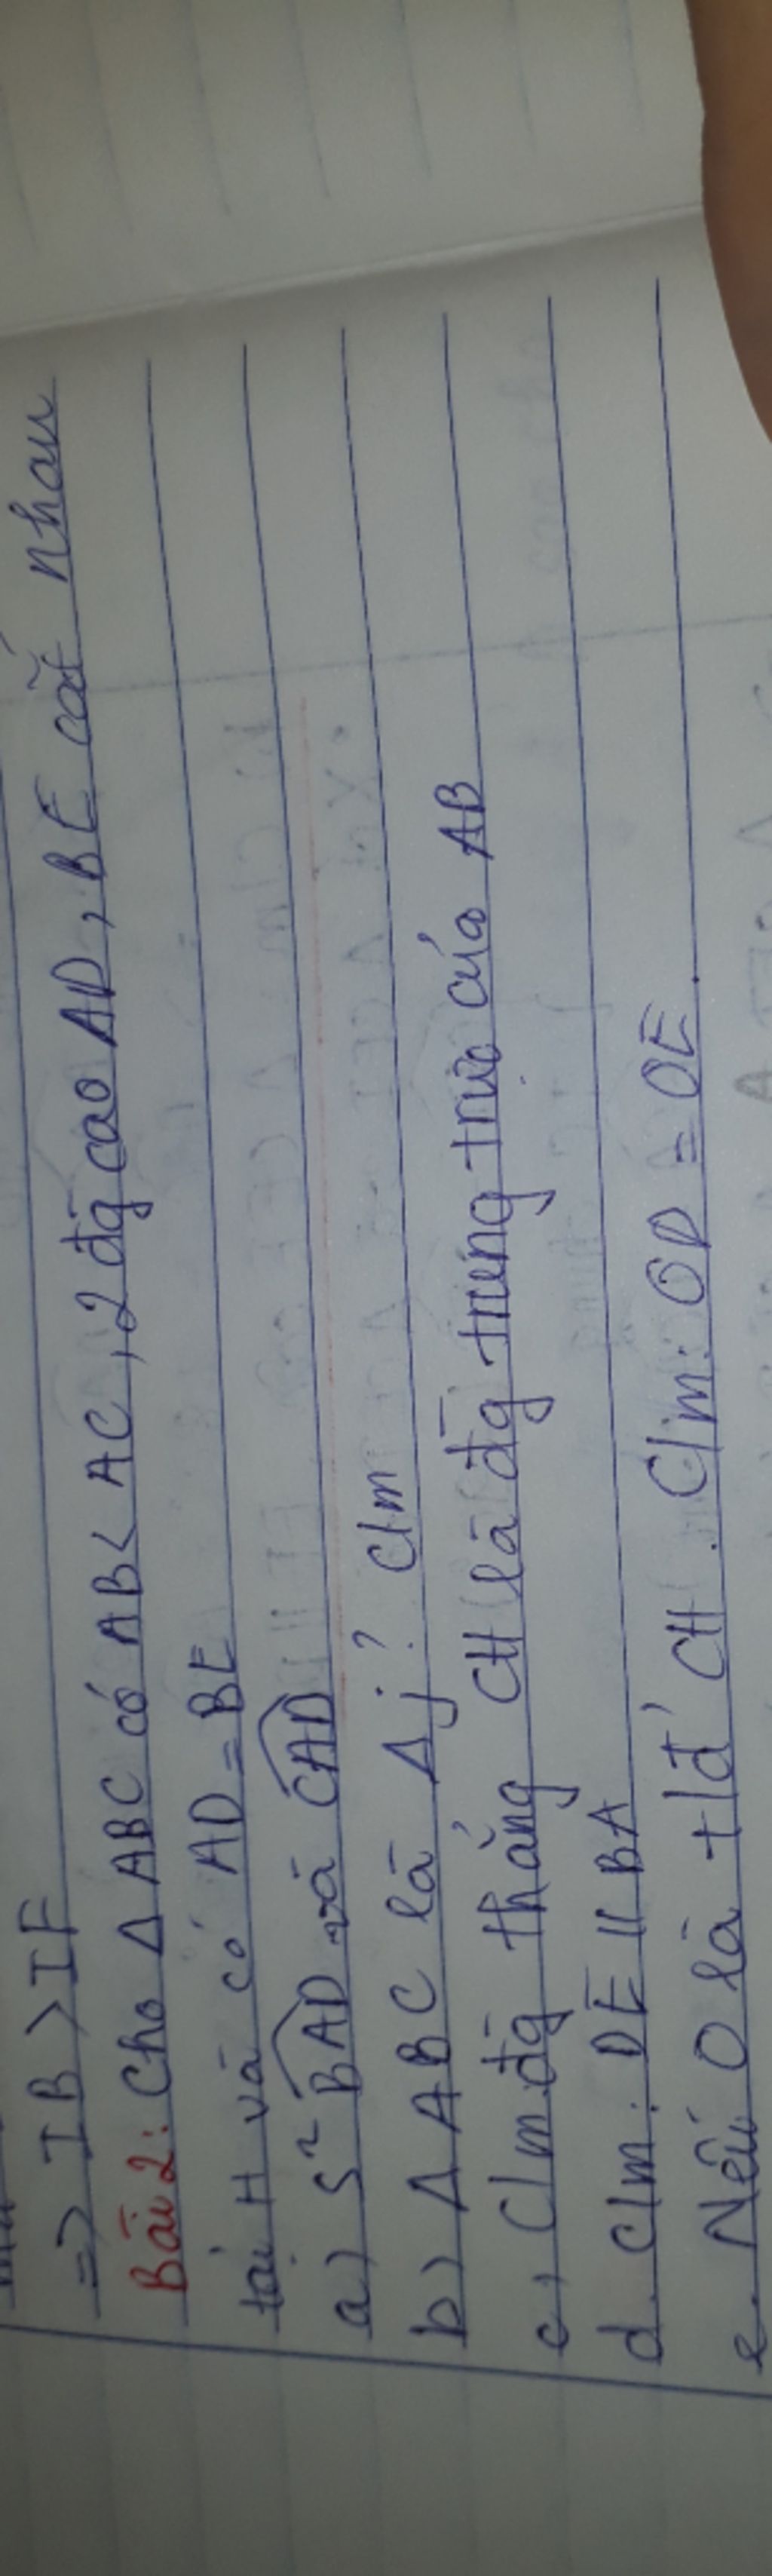 => IB > IF
Bài 2: Cho Δ ABC có AB < AC, 2 đg cao AD, BE cắt nhau
tại H và có AD = BE
a) S² BAD và CAD
b) Δ ABC là Δ j? C/m
c, C/m đg thẳng CH là đg trung trực của AB
d. C/m: DE // BA
e. Nếu O là tđ' CH. C/m: OD = OE